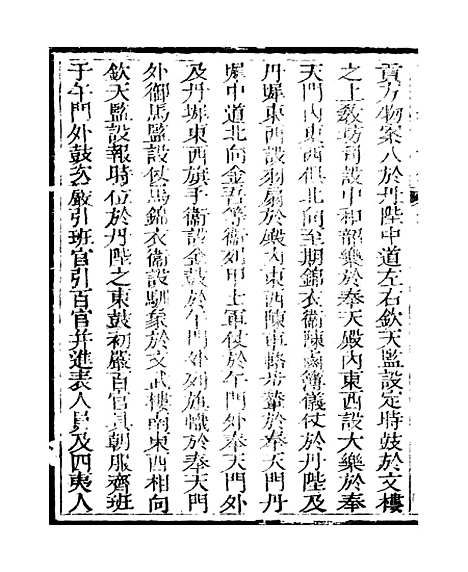 貢方物案八於丹陛中道左右欽天監設定時鼓於文樓
之上敎坊司設中和韶樂於奉天殿內東西設大樂於奉
天門內東西俱北向至期錦衣衞陳鹵簿儀仗於丹陛及
丹墀東西設羽扇於殿內東西陳車輅步輦於奉天門丹
墀中道北向金吾等衞列甲士軍仗於午門外奉天門外
及丹墀東西旗手衞設金鼓於午門外列旌幟於奉天門
外御馬監設仗馬錦衣衞設馴象於文武樓南東西相向
欽天監設報時位於丹陛之東鼓初嚴百官具朝服齊班
于午門外鼓次嚴引班官引百官并進表人員及四夷人